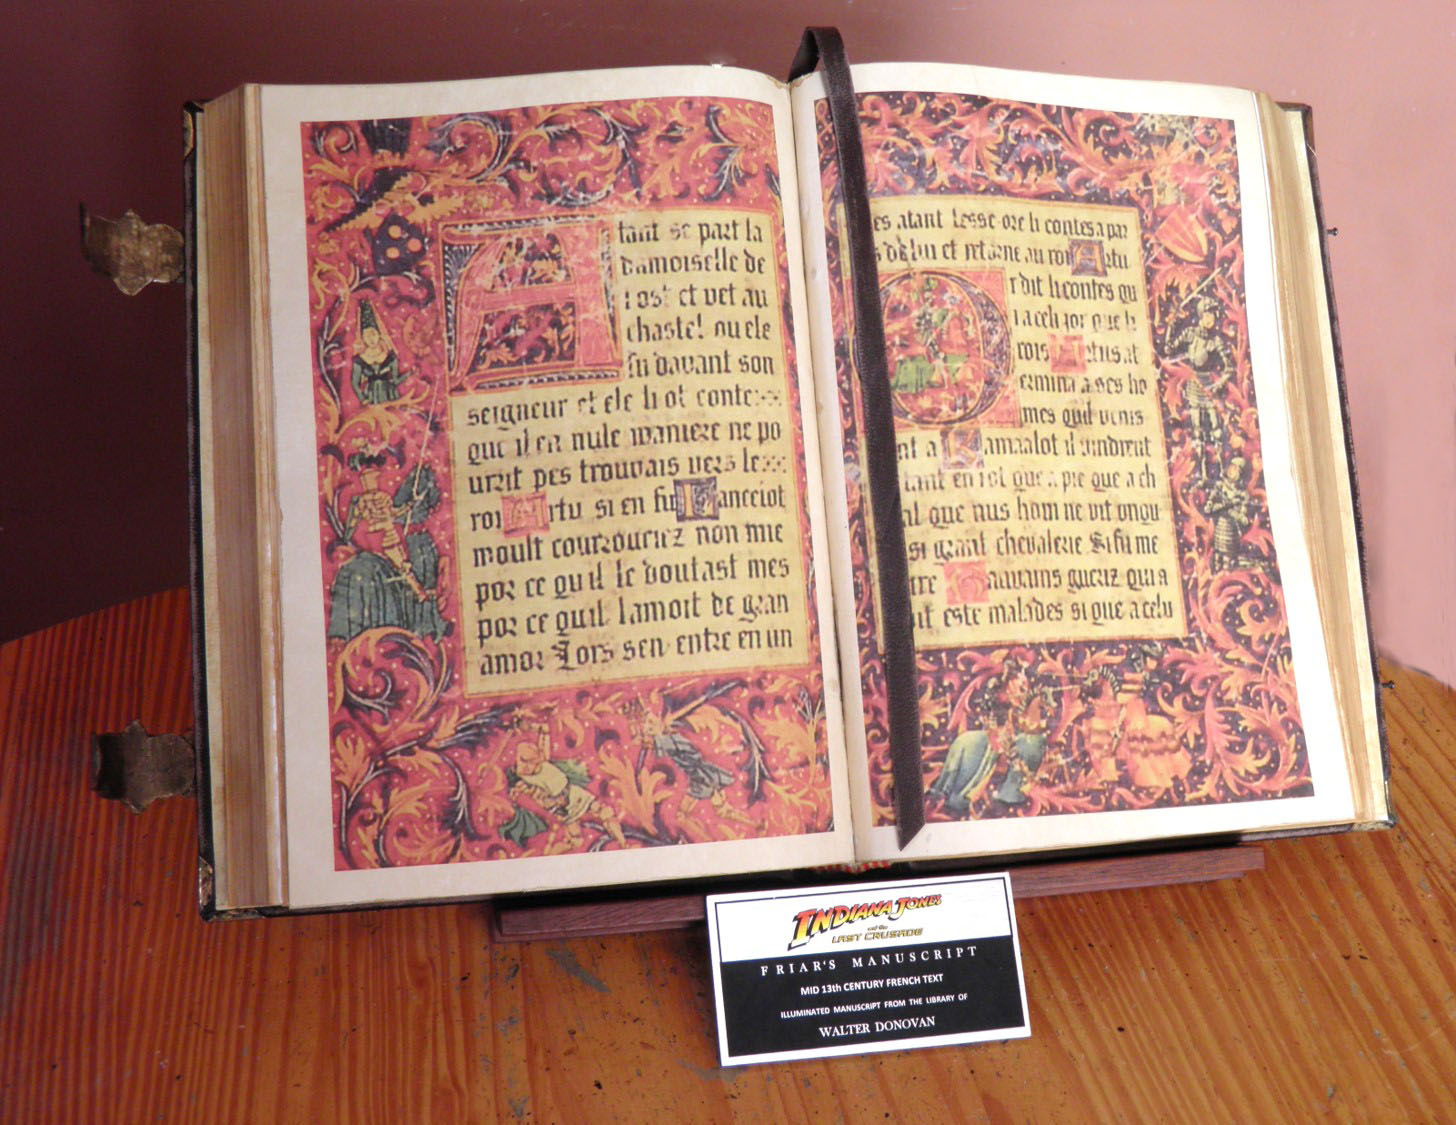 Atant se part la
damoiselle de
rost et vet au
chastel ou ele
fu davant son
seigneur et ele li ot conte
que il en nule maniere ne po
urrit pes trouvais vers le
roi Artu si en fu Lancelot
moult courrouciez non mie
por ce qu il le doutast mes
por ce quil lamoit de gran
amor Lors sen entre en un
es atant lesse ore li contes a par
de lui et retorne au roi Artu
Or dit li contes qu
a celi jor que li
rois Artus at
ermina a ses ho
mes quil venis
nt a Kamaalot il vindrent
tant en i ot que a pie que a ch
al que nus hom ne vit onqu
si grant chevalerie Si fu me
ire Gauvains gueriz qui a
it este malades si que a celu
INDIANA JONES
and the
LAST CRUSADE
FRIAR'S MANUSCRIPT
MID 13th CENTURY FRENCH TEXT
ILLUMINATED MANUSCRIPT FROM THE LIBRARY OF
WALTER DONOVAN